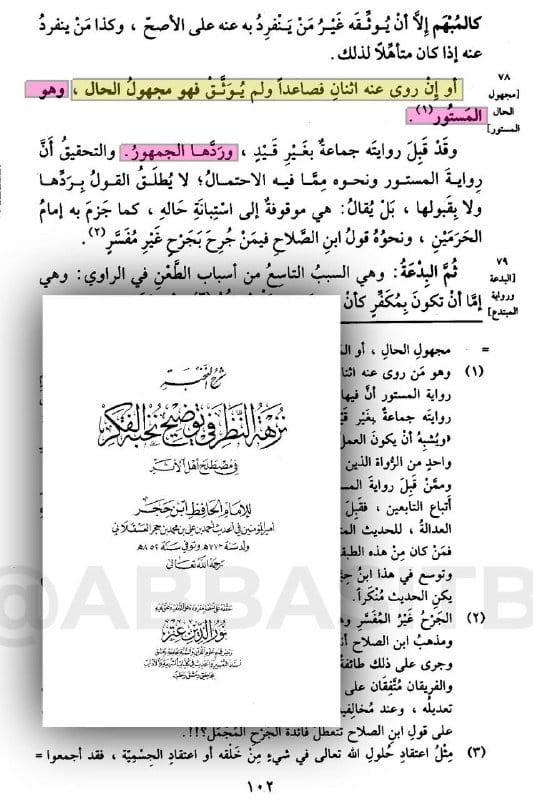 كالمُبْهَم إلاَّ أنْ يُوثِّقَه غَيْرُ مَنْ يَنْفرِدُ به عنه على الأصحّ ، وكذا مَنْ ينفردُ
عنه إذا كان متأهِّلاً لذلك.
٧٨
[مجهول
الحال
المستور]
أو إنْ روى عنه اثنانِ فصاعداً ولم يُوَثَّقْ فهو مجهولُ الحال ، وهو
المَستُور(١).
وقَدْ قَبِلَ روايتَه جماعةٌ بغَيْرِ قَيْدٍ ، وردَّها الجمهورُ. والتحقيقُ أنَّ
رِوايةَ المستور ونحوِه مِمَّا فيه الاحتمالُ؛ لا يُطلَقُ القولُ بِرَدِّها
ولا بِقَبولها ، بَلْ يُقالُ: هي موقوفةٌ إلى اسْتِبانَةِ حَالِه ، كما جَزَمَ به إمامُ
الحَرَمَيْنِ ، ونحوُهُ قولُ ابنِ الصَّلاحِ فيمَنْ جُرِحَ بجَرْحٍ غَيْرِ مُفَسَّرٍ(٢).
٧٩
[البدعة
ورواية
المبتدع]
ثُمَّ البِدْعَةُ: وهي السببُ التاسعُ من أسباب الطَّعْنِ في الراوي: وهي
إمَّا أنْ تكونَ بِمُكَفِّرٍ كأنْ
= مجهولِ الحالِ ، أو
(١) وهو مَن روى عنه
رواية المستور أنَّ فيها
روايتَه جماعةٌ بغَيْرِ
«ويُشْبِهُ أنْ يكونَ العمل
واحدٍ من الرُّواة الذين
وممَّن قَبِلَ روايةَ
أتباع التابعين ، فقَبِلَ
العدالة ، للحديث
فمَنْ كان مِنْ هذه
وتوسع في هذا ابنُ
يكنِ الحديث مُنْكَراً.
(٢) الجَرْحُ غَيْرُ المُفَسَّرِ
ومذهبُ ابنِ الصلاح
وجرى على ذلك طائفةٌ
والفريقان مُتَّفِقَان على
تعديلُه ، وعند
على قولِ ابنِ الصلاح تتعطل فائدة الجَرْحِ المُجْمَلِ؟!!.
(٣) مِثْلُ اعتقادِ حُلولِ الله تعالى في شيءٍ مِنْ خَلْقه أو اعتقادِ الجِسْمِيَّة ، فقد أجمعوا =
١٠٢
شرح النخبة
نزهة النظر في توضيح نخبة الفكر
في مصطلح أهل الأثر
للإمام الحافظ ابن حجر
أمير المؤمنين في الحديث أحمد بن علي بن محمد بن حجر العسقلاني
ولد سنة ٧٧٣هـ وتوفي سنة ٨٥٢هـ
رحمه الله تعالى
نور الدين عتر
@ABBASTB